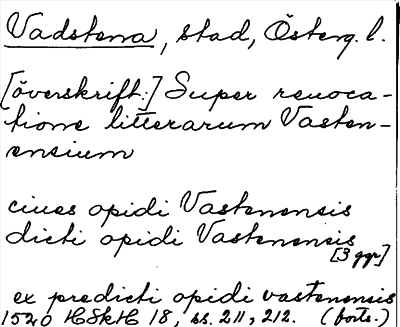 Vadstena, stad, Österg. l.
[överskrift:] Super reuoca-
tione litterarum Vasten-
ensium
ciues opidi Vastenensis
dicti opidi Vastenensis
[3 ggr]
ex predicti opidi vastenensis
1520 HSkH 18, ss. 211, 212. (forts.)